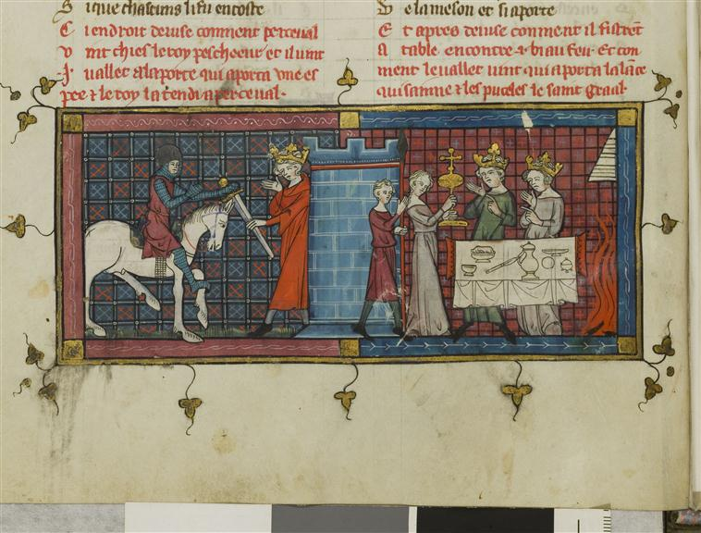 S i que chascuns li fu encoste
C i endroit deuise comment perceual
v int chies le roy pescheeur et il uint
.j. uallet a la porte qui aporta vne es
pee & le roy la tendi a perceual.
E t apres deuise coment il sistrent
A table encontre .j. biau feu. Et con
ment le uallet uint qui aporta la lāce
qui sainne & les puceles le saint graal.